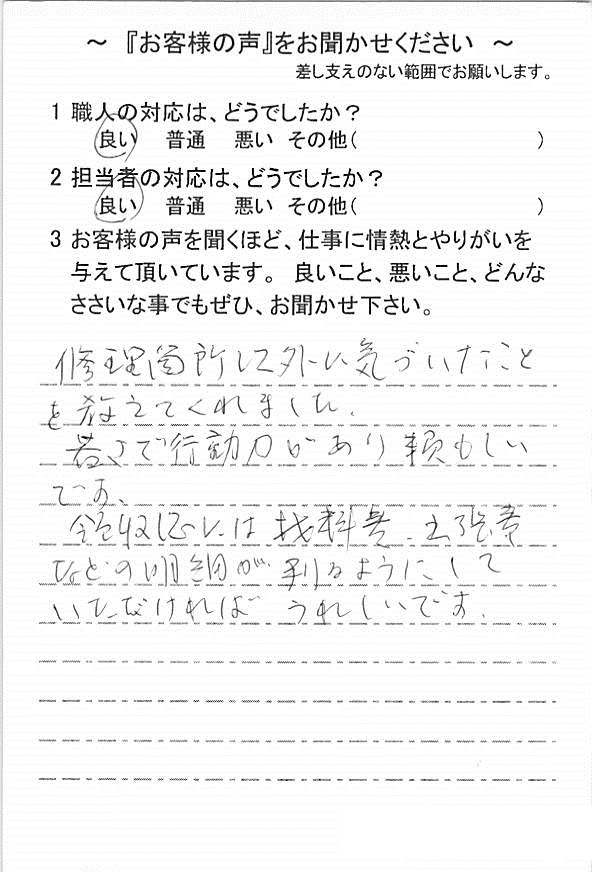 ～ 『お客様の声』をお聞かせください ～
差し支えのない範囲でお願いします。
1 職人の対応は、どうでしたか？
良い 普通 悪い その他( )
2 担当者の対応は、どうでしたか？
良い 普通 悪い その他( )
3 お客様の声を聞くほど、仕事に情熱とやりがいを
与えて頂いています。 良いこと、悪いこと、どんな
ささいな事でもぜひ、お聞かせ下さい。
修理箇所以外に気づいたこと
を教えてくれました。
若さで行動力があり頼もしい
です。
領収証には材料費、工賃費
などの明細が判るようにして
いただければうれしいです。